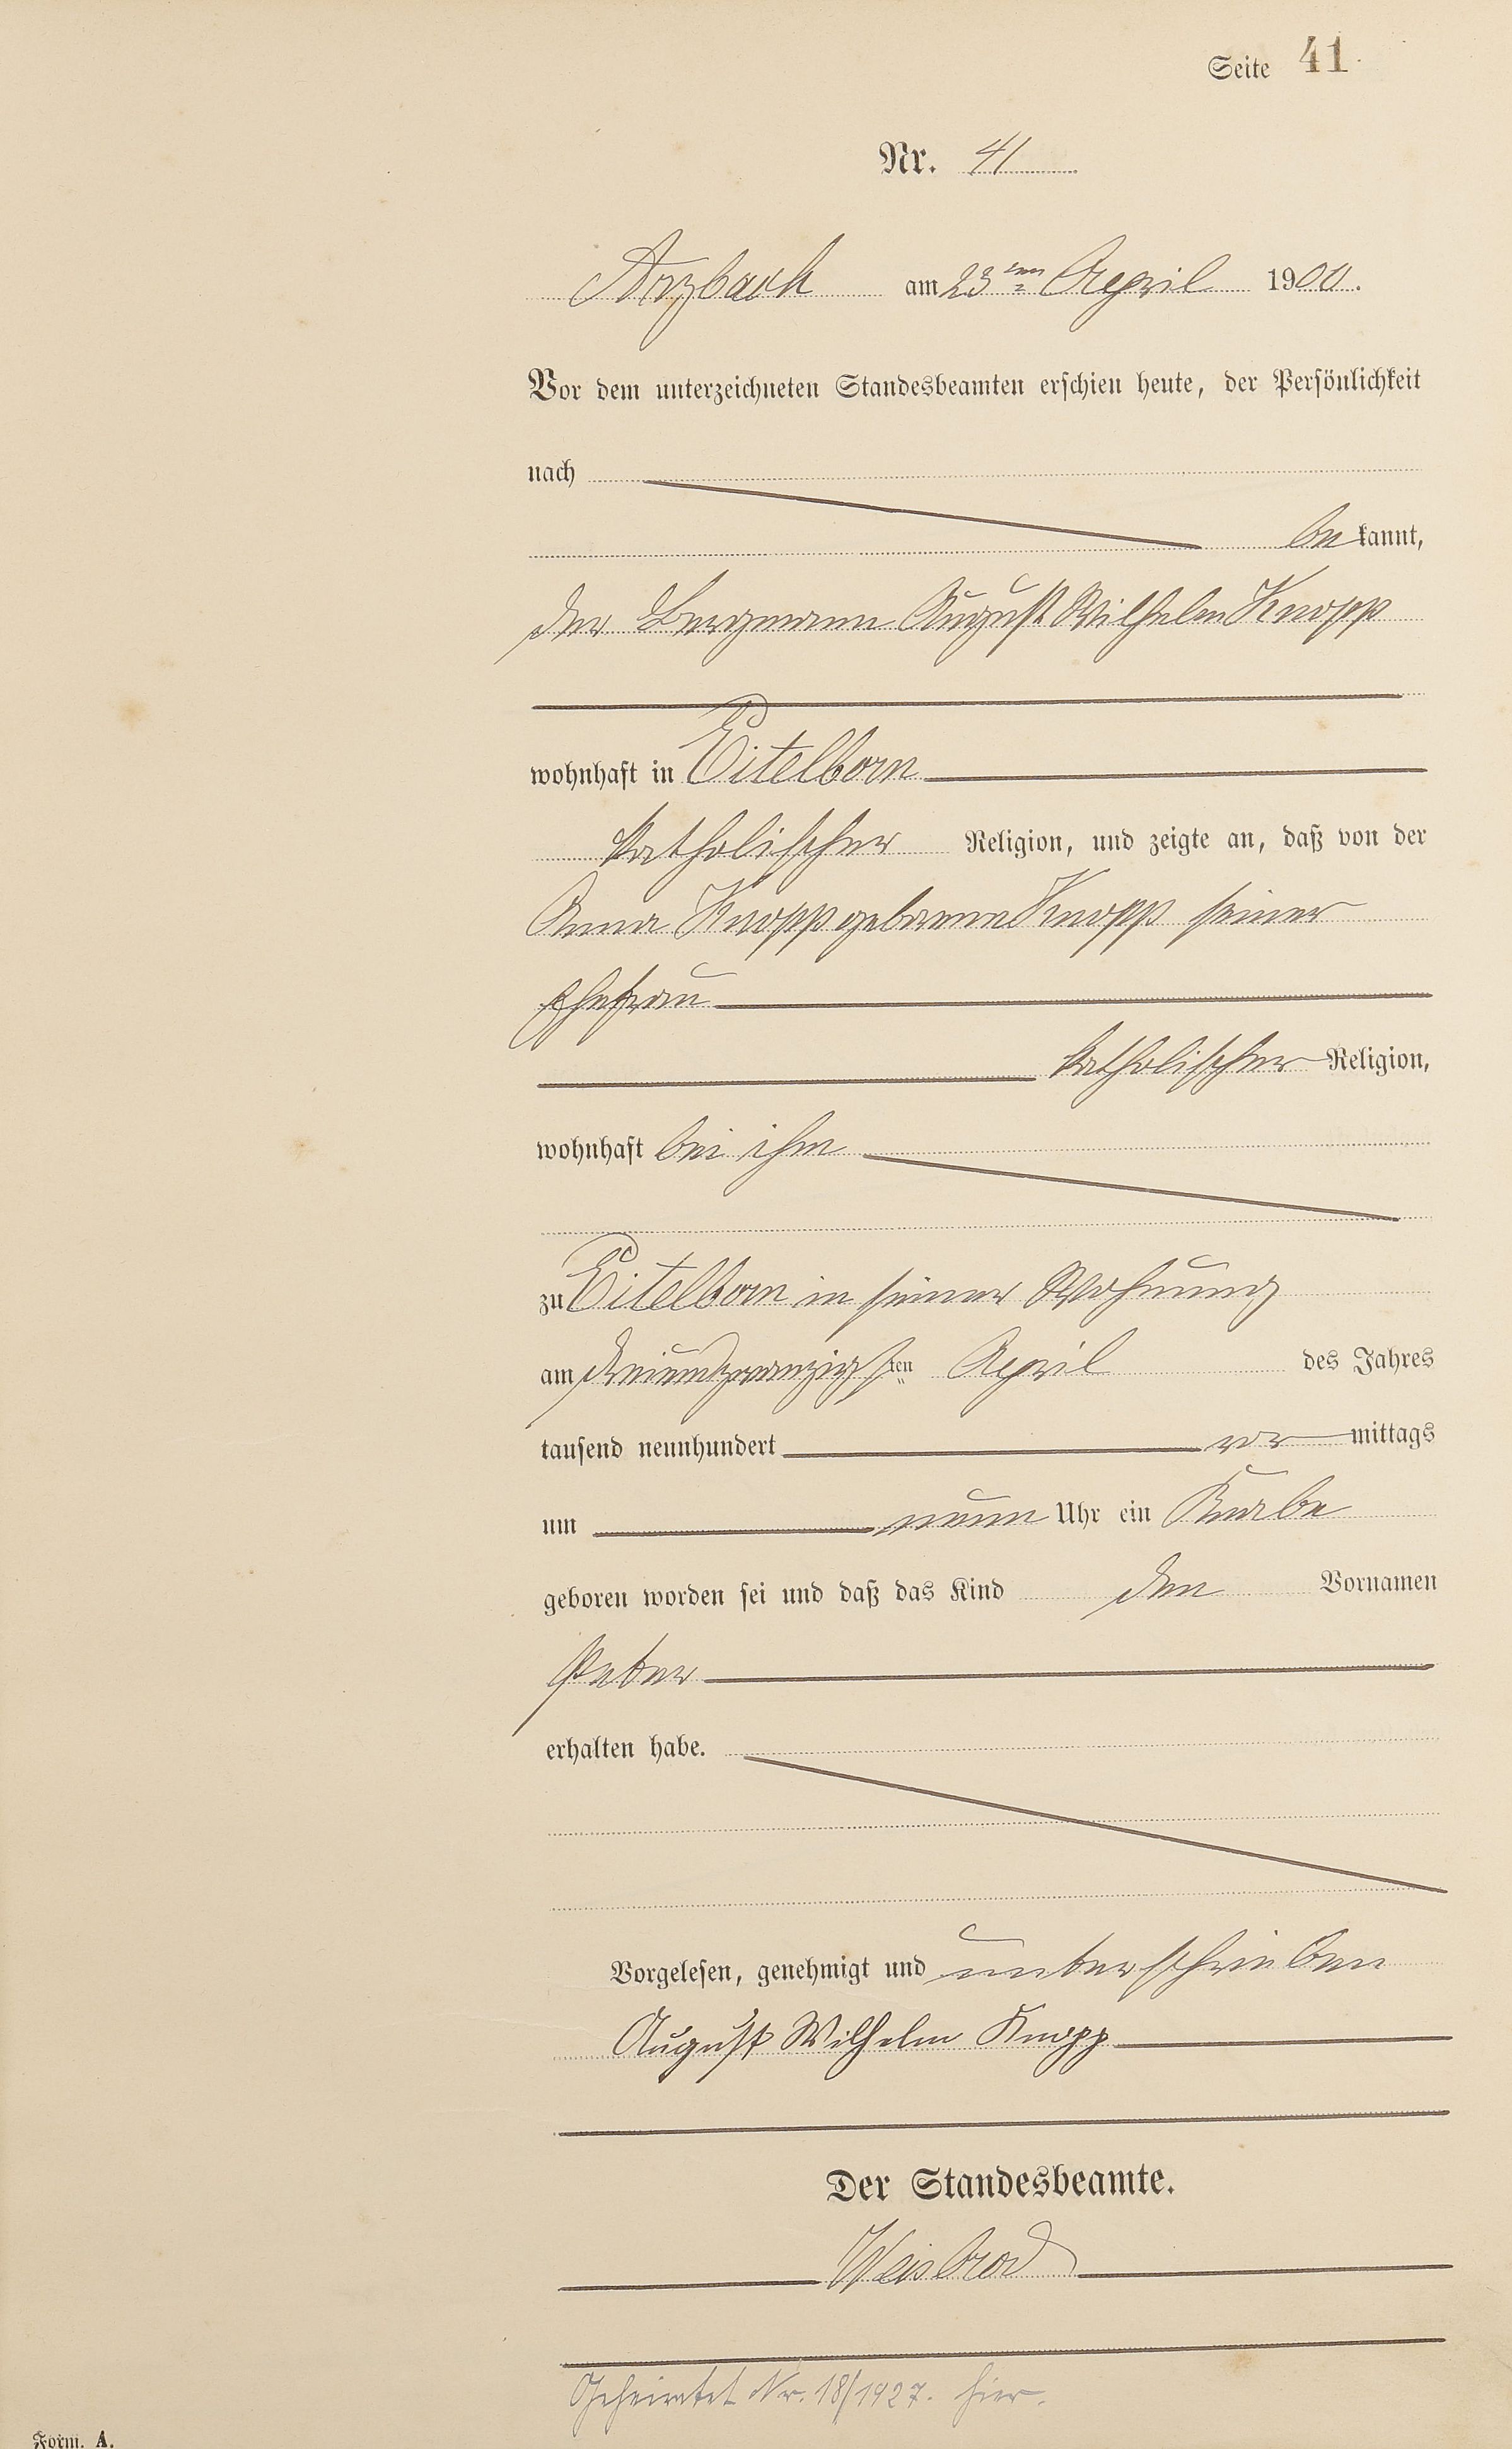 Seite 41.
Nr. 41
Arzbach am 23ten April 1900.
Vor dem unterzeichneten Standesbeamten erschien heute, der Persönlichkeit
nach
be kannt,
der Bergmann August Wilhelm Knopp
wohnhaft in Eitelborn
katholischer Religion, und zeigte an, daß von der
Anna Knopp geborene Knopp seiner
Ehefrau
katholischer Religion,
wohnhaft bei ihm
zu Eitelborn in seiner Wohnung
am dreiundzwanzigsten April des Jahres
tausend neunhundert vor mittags
um neun Uhr ein Knabe
geboren worden sei und daß das Kind den Vornamen
Peter
erhalten habe.
Vorgelesen, genehmigt und unterschrieben
August Wilhelm Knopp
Der Standesbeamte.
Weisbrod
Geheiratet Nr. 18/1927. hier.
Form. A.